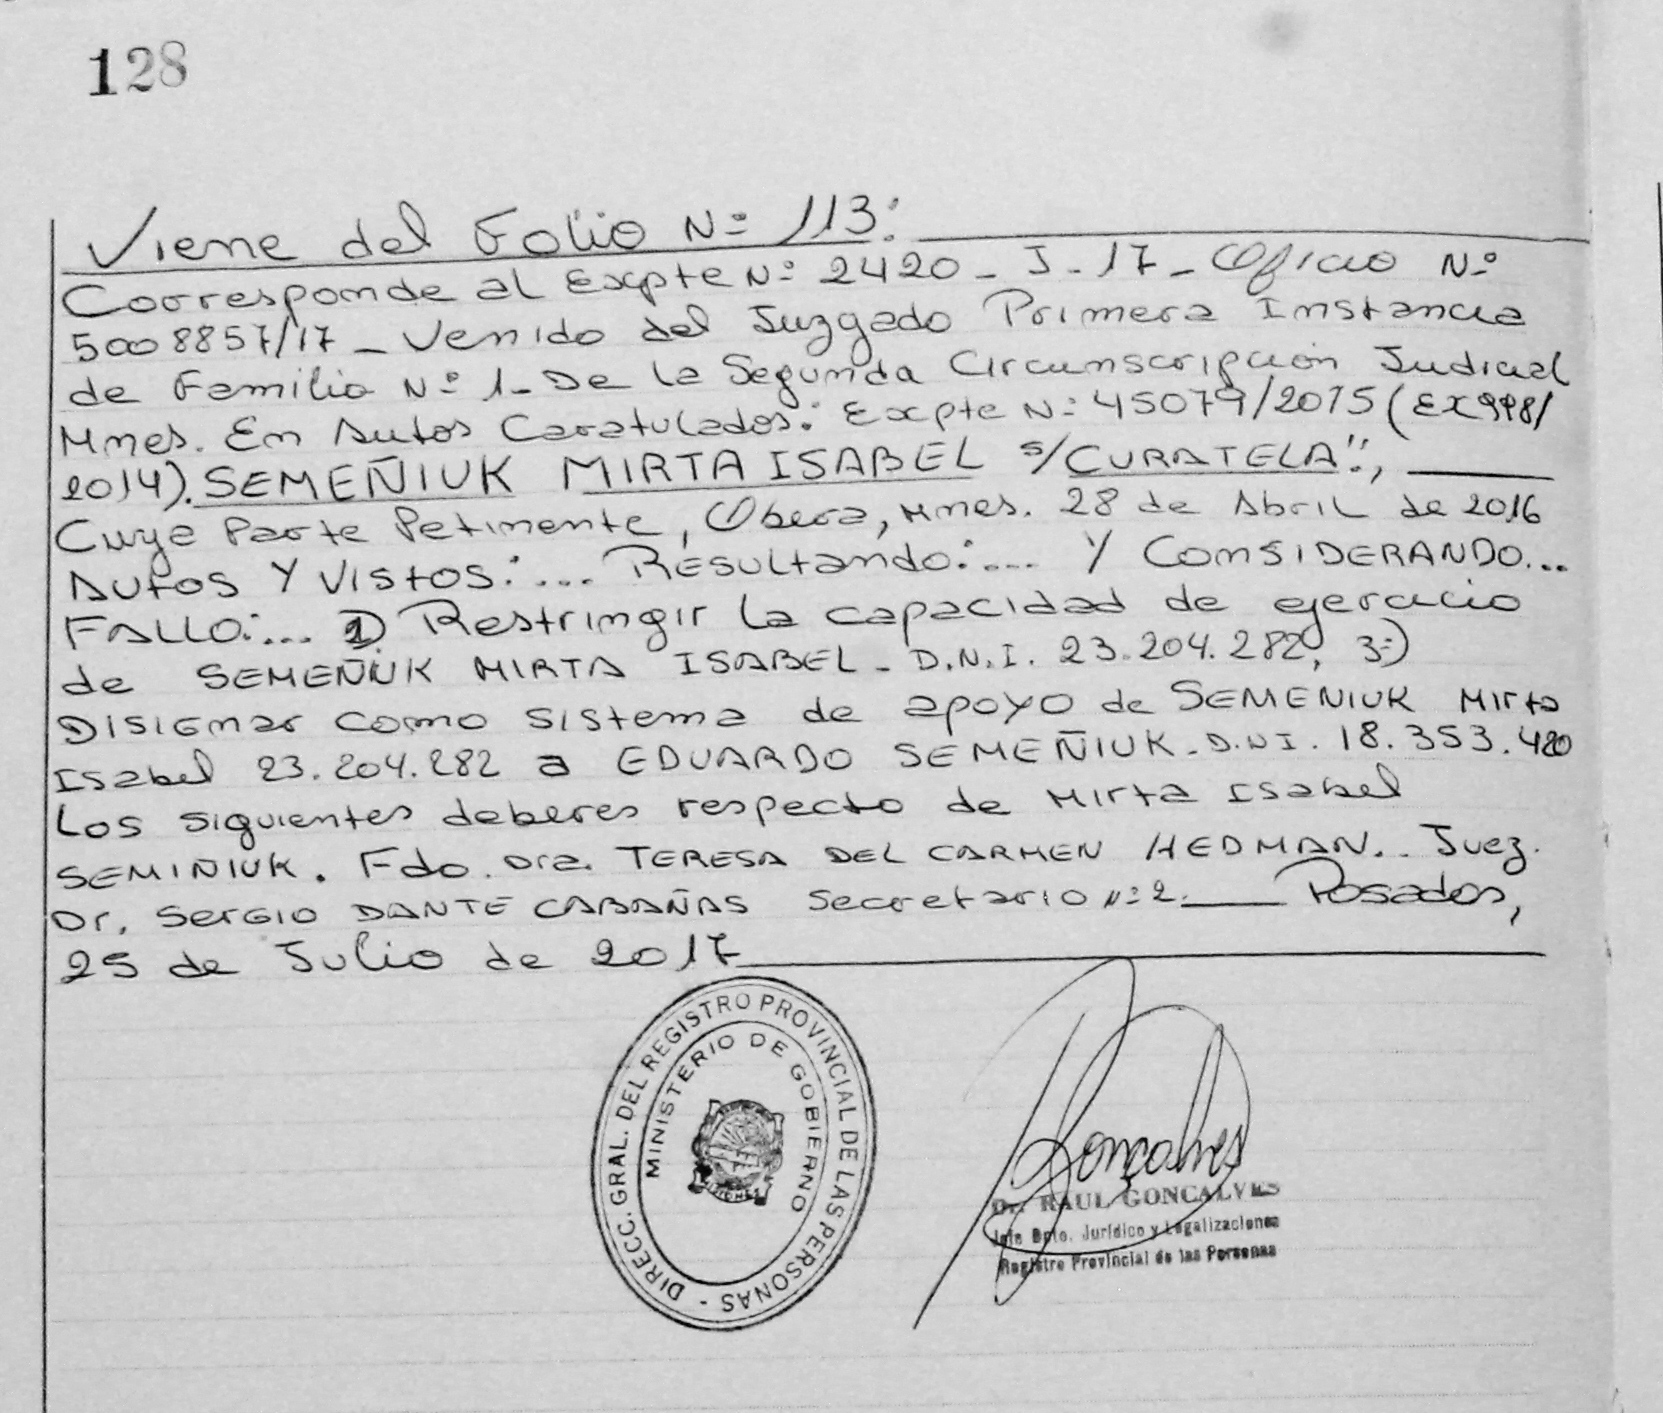 128
Viene del Folio Nº 113:
Corresponde al Expte Nº 2420 - J - 17 - Oficio Nº
5008857/17 - Venido del Juzgado Primera Instancia
de Familia Nº 1 - De la Segunda Circunscripción Judicial
Mnes. En Autos Caratulados: Expte Nº 45079/2015 (EX998/
2014). SEMEÑIUK MIRTA ISABEL s/CURATELA",
Cuya Parte Petinente, Obera, Mnes. 28 de Abril de 2016
AUTOS Y VISTOS:... RESULTANDO:... Y CONSIDERANDO...
FALLO:... 1) Restringir la capacidad de ejercicio
de SEMEÑIUK MIRTA ISABEL - D.N.I. 23.204.282, 3º)
DISIGNAR como sistema de apoyo de SEMENIUK Mirta
Isabel 23.204.282 a EDUARDO SEMEÑIUK - D.N.I. 18.353.420
Los siguientes deberes respecto de Mirta Isabel
SEMIÑIUK. Fdo. Dra. TERESA DEL CARMEN HEDMAN. Juez.
Dr. SERGIO DANTE CABAÑAS Secretario Nº 2. Posadas,
25 de Julio de 2017
DIRECC. GRAL. DEL REGISTRO PROVINCIAL DE LAS PERSONAS -
MINISTERIO DE GOBIERNO
MISIONES
Gonçalves
Dr. RAUL GONCALVES
Jefe Dpto. Jurídico y Legalizaciones
Registro Provincial de las Personas